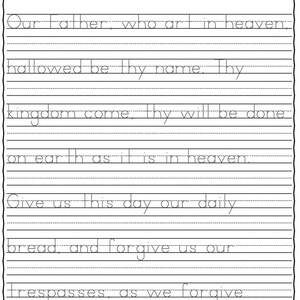 Our Father, who art in heaven,
hallowed be thy name. Thy
kingdom come, thy will be done
on earth as it is in heaven.
Give us this day our daily
bread, and forgive us our
trespasses, as we forgive